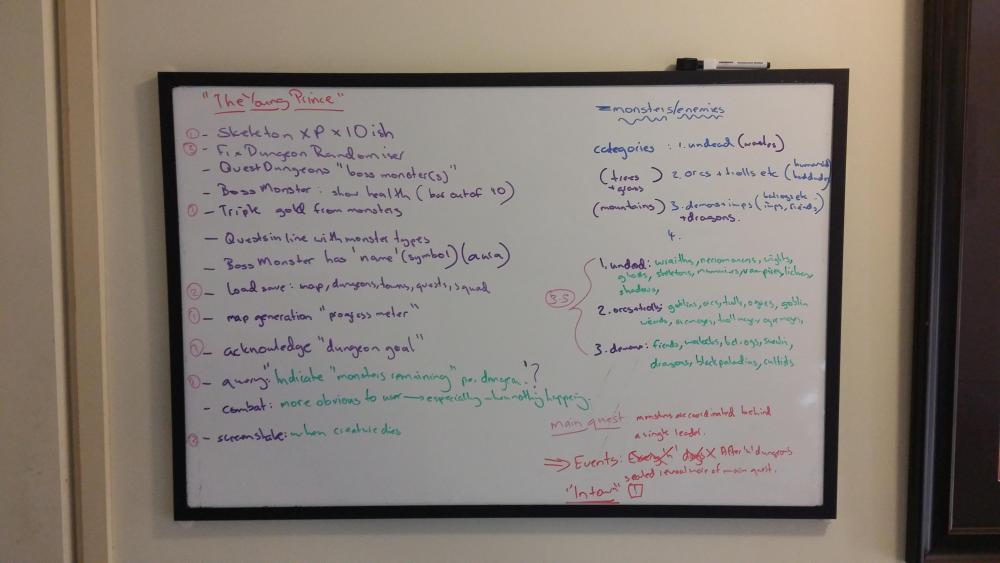 "The Young Prince"
① - Skeleton XP x 10 ish
③ - Fix Dungeon Randomiser
- Quest Dungeons "boss monster(s)"
- Boss Monster : show health (bar out of 10)
① - Triple gold from monsters
- Quests in line with monster types
- Boss Monster has 'name' (symbol)
② - load save: map, dungeons, towns, quests, squad
① - map generation "progress meter"
- acknowledge "dungeon goal"
- query: "Indicate "monsters remaining" per dungeon.'?
- combat: more obvious to user → especially when nothing happening.
- screenshake: when creature dies
monsters/enemies
categories : 1. undead (wastes)
(trees) 2. orcs + trolls etc
(mountains) 3. demons + imps (balrogs etc imps, fiends)
+ dragons.
4.
3.5
1. undead: wraiths, necromancers, wights,
ghosts, skeletons, mummies, vampires, liches,
shadows,
2. orcs + trolls: goblins, orcs, trolls, ogres, goblin
3. demons: fiends, warlocks, balrogs,
dragons, black paladins, cultists
main quest monsters are coordinated behind
a single leader.
⇒ Events: After 'n' dungeons
sealed reveal more of main quest.
"In town" 1